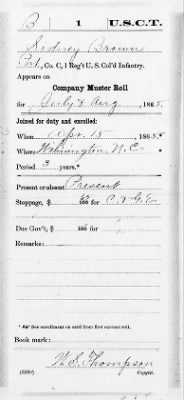 B | 1 | U.S.C.T.
Sidney Brown
Co. C, 1 Reg't U. S. Col'd Infantry.
Appears on
Company Muster Roll
for July & Aug, 1865.
Joined for duty and enrolled:
When Apr. 15, 1865.*
Where Wilmington N.C.
Period 3 years.*
Present or absent Present
Stoppage, $ 100 for
Due Gov't, $ 100 for
Remarks:
* See enrollment on card from first current roll.
Book mark:
W. S. Thompson
(858) Copyist.